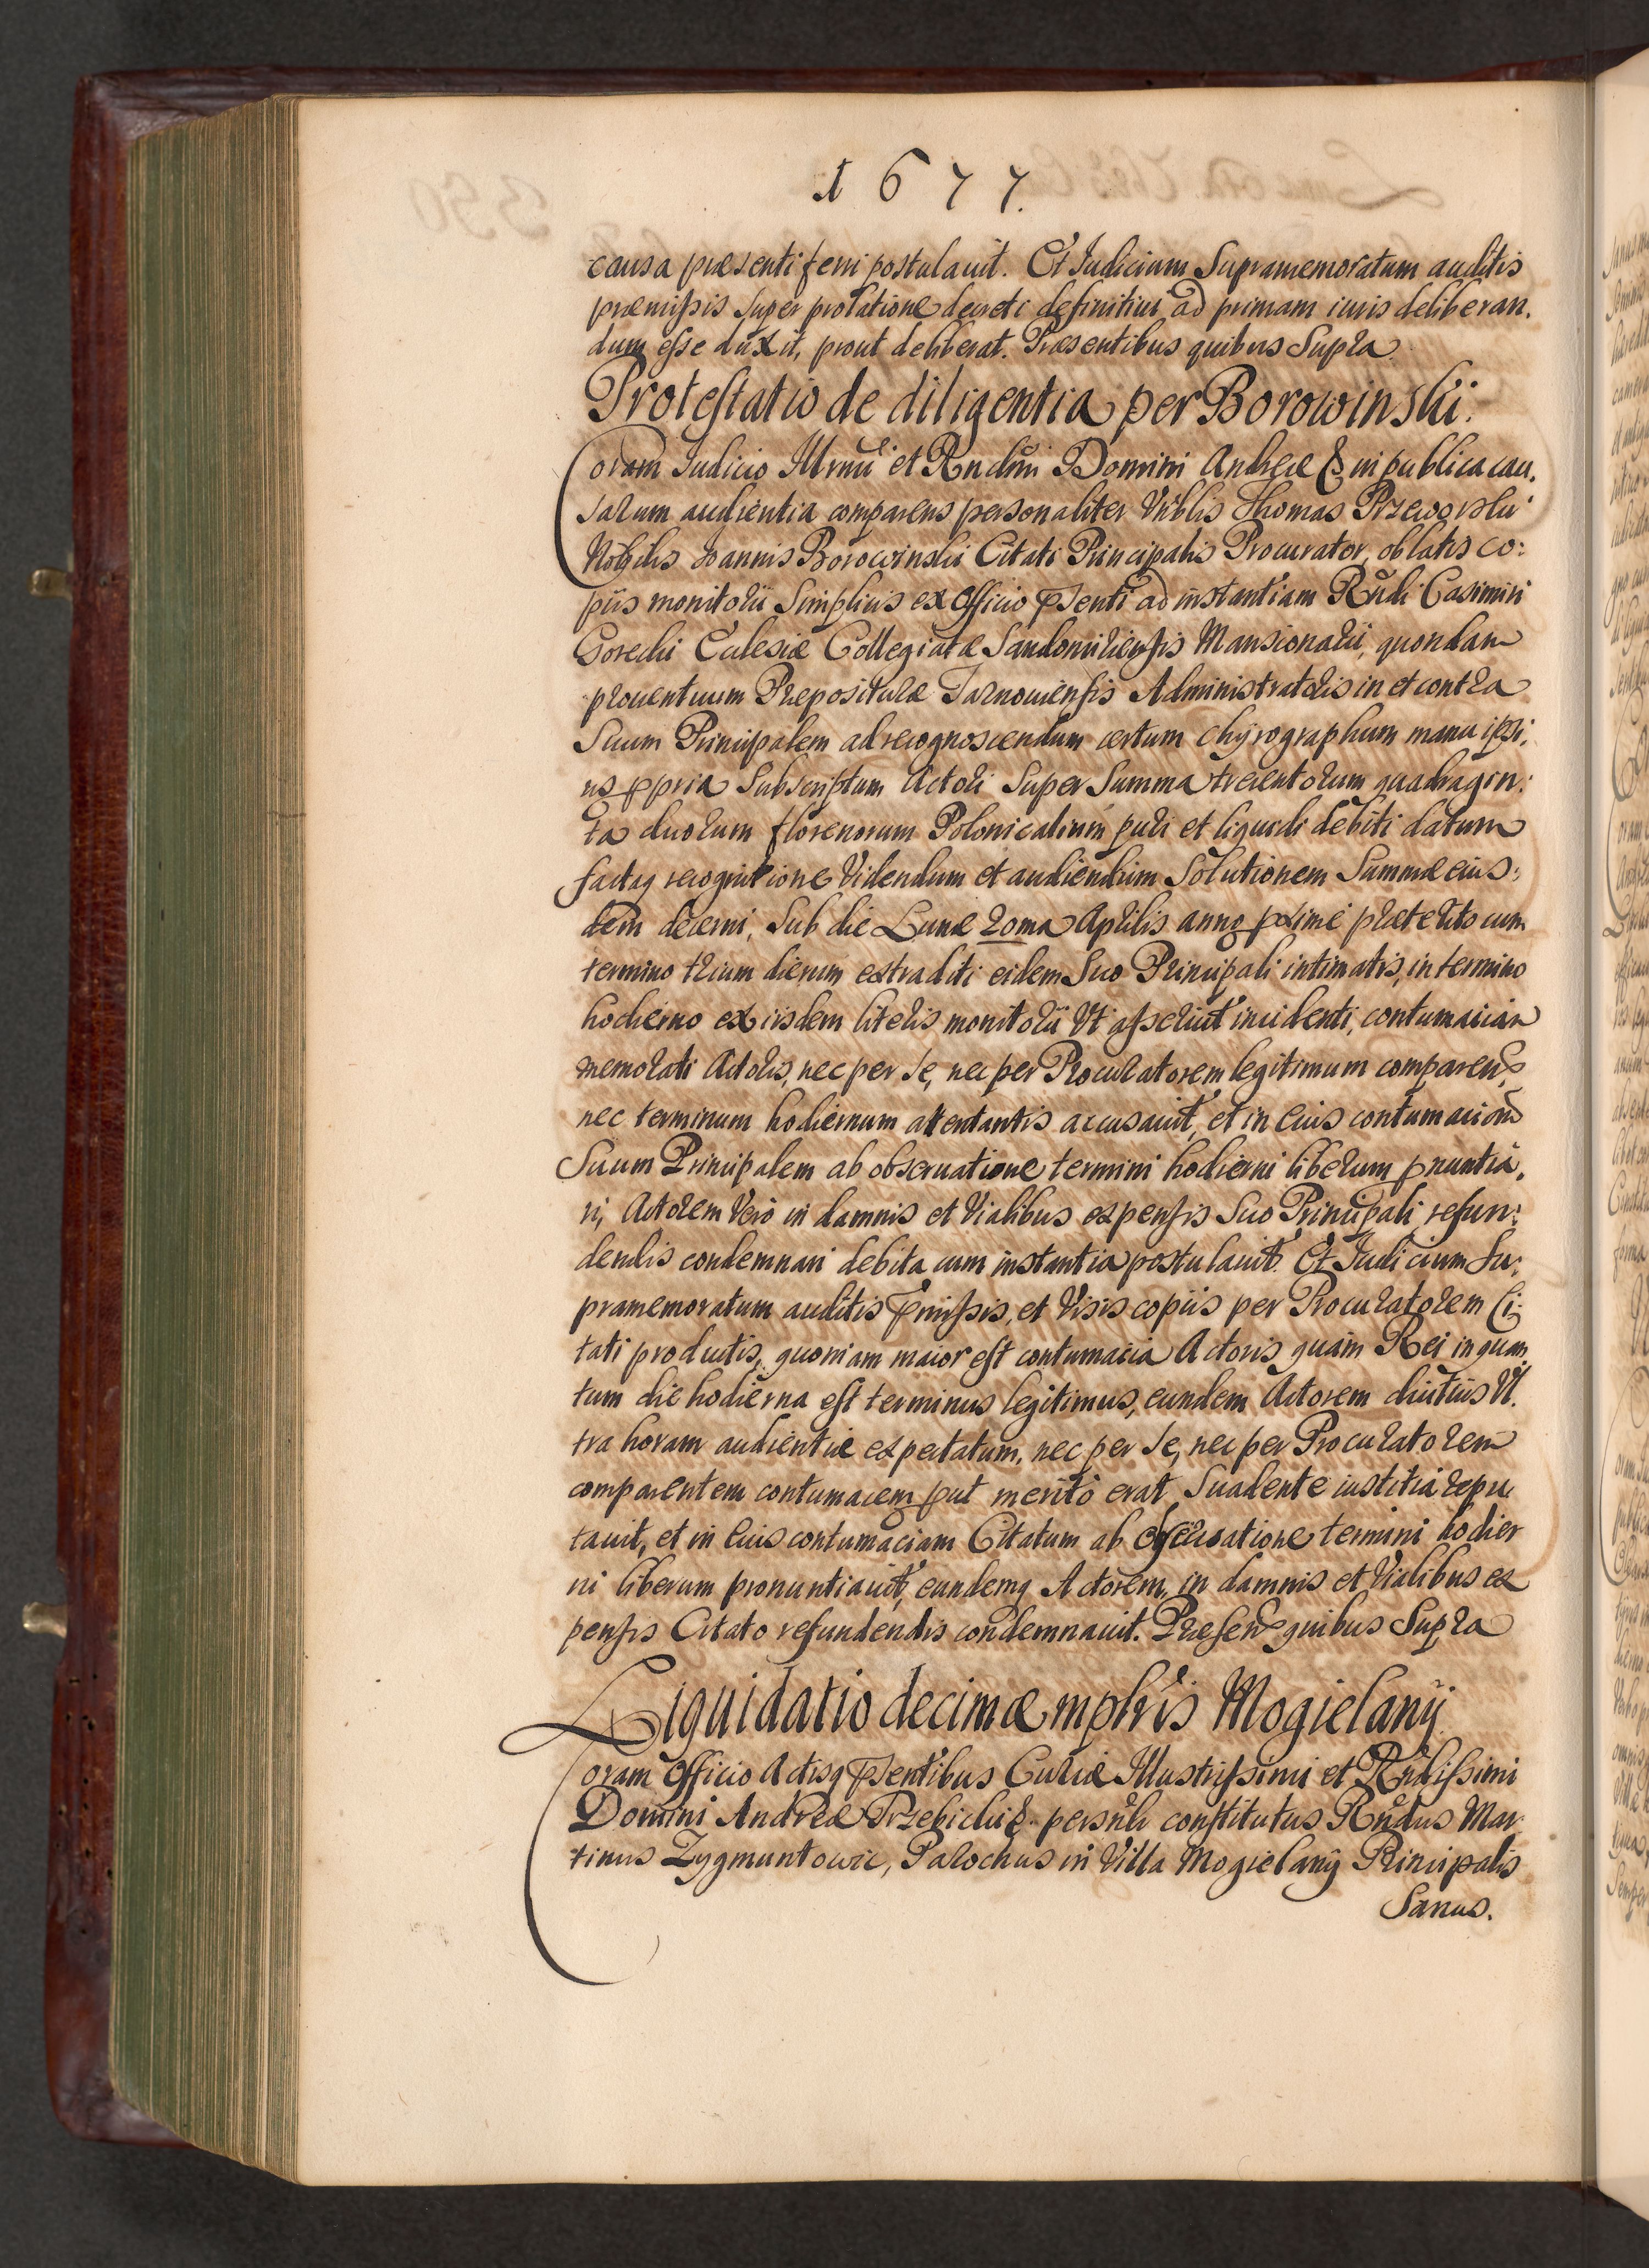 1677.
causa præsenti ferri postulauit. Et Iudicium Supramemoratum auditis
præmissis super prolatione decreti definitiui ad primam iuris deliberan.
dum esse duxit, prout deliberat. Præsentibus quibus Supra
Protestatio de diligentia per Borowinski.
Coram Iudicio Illrmi et Rndmi Domini Andreæ & in publica cau.
sarum audientia comparens personaliter Nblis Thomas Przeworski
Nobilis Joannis Borowinski Citati Principalis Procurator, oblatis co:
piis monitorii Simplicis ex Officio psenti ad instantiam Rndi Casimiri
Gorecki Eclesiæ Collegiatæ Sandomiriensis Mansionarii, quondam
prouentuum Præposituræ Tarnouiensis Administratoris in et contra
Suum Principalem ad recognoscendum certum chyrographum manu ipsi:
us ppria Subscriptum Actori Super Summa trecentorum quadragin:
ta duorum florenorum Polonicalium puri et liquidi debiti datum
factaq recognitione Videndum et audiendum Solutionem Summæ eius:
dem decerni, Sub die Lunæ 20ma Aprilis anno pxime præterito cum
termino trium dierum extraditi eidem Suo Principali intimatis, in termino
hodierno ex iisdem literis monitorii Vt asseruit incidenti, contumaciam
memorati Actoris, nec per se, nec per Procuratorem legitimum comparens
nec terminum hodiernum attentantis accusauit, et in eius contumaciam
Suum Principalem ab obseruatione termini hodierni liberum pnuntia.
ri, Actorem Vero in damnis et Vialibus expensis Suo Principali refun:
dendis condemnari debita cum instantia postulauit. Et Iudicium Su:
pramemoratum auditis pmissis, et Visis copiis per Procuratorem Ci:
tati productis, quoniam maior est contumacia Actoris quam Rei in quan
tum die hodierna est terminus legitimus, eundem Actorem diutius Vl.
tra horam audientiæ expectatum, nec per se, nec per Procuratorem
comparentem contumacem put merito erat Suadente iustitia repu
tauit, et in eius contumaciam Citatum ab obseruatione termini hodier
ni liberum pronuntiauit, eundemq Actorem in damnis et Vialibus ex
pensis Citato refundendis condemnauit. Præsens quibus Supra
Liquidatio decimæ mplris Mogielanij
Coram Officio Actisq psentibus Curiæ Illustrissimi et Rndissimi
Domini Andreæ Trzebicki & persnlr constitutus Rndus Mar
tinus Zygmuntowic, Parochus in Villa Mogielanij Principalis
Sanus.